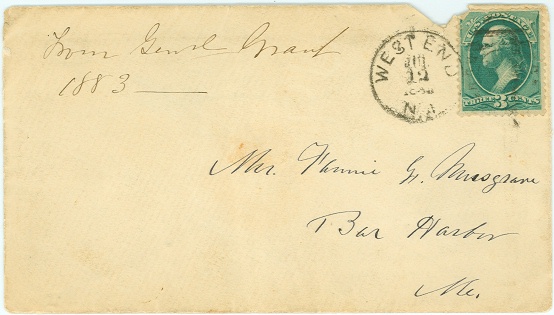 From Genl Grant
1883
WEST END
JUL
12
N.J.
U.S. POSTAGE
THREE 3 CENTS
Mrs. Fannie G. Musgrave
Bar Harbor
Me.